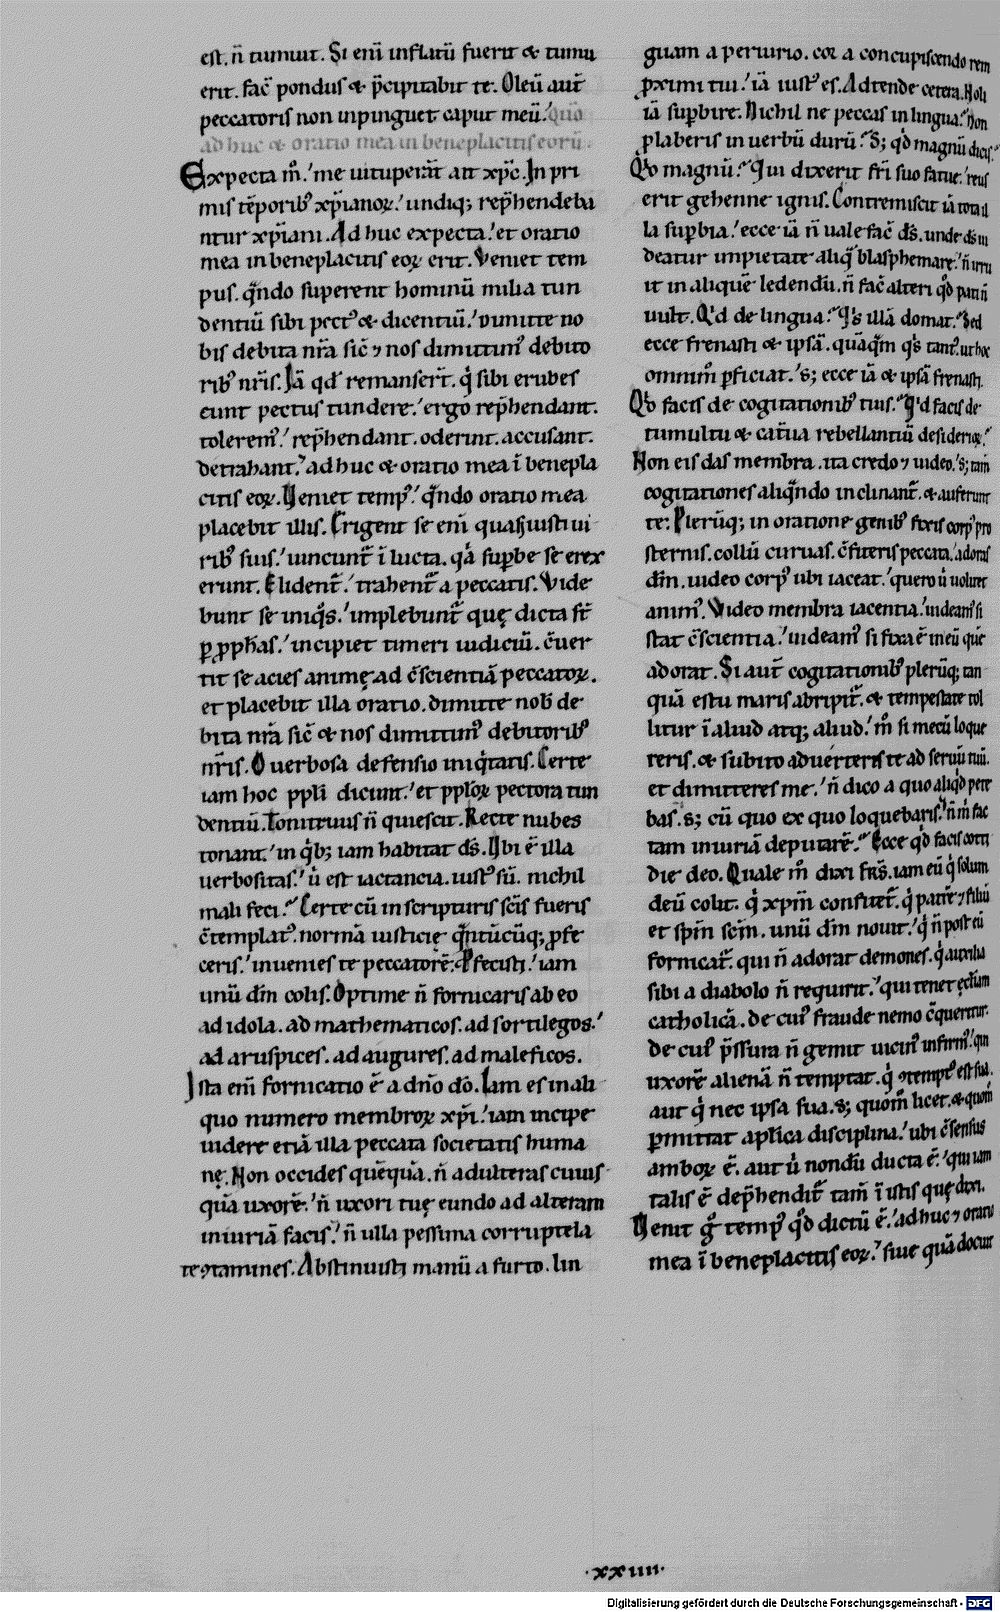 est. n̄ tumuit. Si eni̅ inflatū fuerit & tumu
erit. fac̄ pondus & p̄cipitabit te. Oleū aut̄
peccatoris non inpinguet caput meū. quō
adhuc & oratio mea in beneplacitis eorū.
Expecta m̊. me uituperāt ait xp̄c. In pri
mis tēporib; xp̄ianoꝝ. undiq; rep̄hendeba
ntur xp̄iani. Adhuc expecta. et oratio
mea in beneplacitis eoꝝ erit. Veniet tem
pus. q̄ndo superent hominū milia tun
dentiū sibi pect᷒ & dicentiū. dimitte no
bis debita nr̄a sic̄ ⁊ nos dimittim᷒ debito
rib᷒ nr̄is. Iā qd̄ remanser̄t. q̇ sibi erubes
cunt pectus tundere. ergo rep̄hendant.
tolerem᷒. rep̄hendant. oderint. accusant.
detrahant. adhuc & oratio mea ī benepla
citis eoꝝ. Veniet temp᷒. q̄ndo oratio mea
placebit illis. Erigent se eni̅ quasi iusti ui
rib᷒ suis. uincunt̄ ī lucta. qȧ supbe se erex
erunt. Elident̄. trahent̄ a peccatis. Vide
bunt se iniq̇s. implebunt̄ quę dicta st̄
p ꝓph̄as. incipiet timeri iudiciū. c̄uer
tit se acies animę ad c̄scientiā peccatoꝝ.
et placebit illa oratio. dimitte nob̄ de
bita nr̄a sic̄ & nos dimittim᷒ debitorib᷒
nr̄is. O uerbosa defensio iniq̇tatis. Certe
iam hoc ppl̄i dicunt. et ppl̄oꝝ pectora tun
dentiū. Tonitruus n̄ quiescit. Recte nubes
tonant. in q̇b; iam habitat ds̄. Vbi ē illa
uerbositas. u̇ est iactancia. iust᷒ sū. nichil
mali feci. Certe cū in scripturis sc̄is fueris
c̄templat᷒. normā iusticię q̄ntūcūq; ꝓfe
ceris. inuenies te peccatorē. Ꝓfecisti. iam
unū dm̄ colis. Optime n̄ fornicaris ab eo
ad idola. ad mathematicos. ad sortilegos.
ad aruspices. ad augures. ad maleficos.
Ista eni̅ fornicatio ē a dn̄o dō. Iam es in ali
quo numero membroꝝ xp̄i. iam incipe
uidere etiā illa peccata societatis huma
nę. Non occides quēquā. n̄ adulteras cuius
quā uxorē. n̄ uxori tuę eundo ad alteram
iniuriā facis. n̄ ulla pessima corruptela
te ꝯtamines. Abstinuisti manū a furto. lin
guam a periurio. cor a concupiscendo rem
ꝓximi tui. iā iust᷒ es. Adtende cetera. Noli
iā supbire. Nichil ne peccas in lingua. Non
ꝓlaberis in uerbū durū. S; qd̄ magnū dicis.
Qd̄ magnū. Qui dixerit fr̄i suo fatue. reus
erit gehenne ignis. Contremiscit iā tota il
la supbia. ecce iā n̄ uale fac̄ ds̄. unde ds̄ ui
deatur impietate aliq̄ blasphemare. n̄ irru
it in aliquē ledendū. n̄ fac̄ alteri qd̄ pati n̄
uult. Qd̄ de lingua. Q̇s illā domat. Sed
ecce frenasti & ipsā. quāq̄m q̇s tant᷒. ut hoc
omnim̊ pficiat. s; ecce iā & ipsā frenasti.
Qd̄ facis de cogitationib᷒ tuis. Qd̄ facis de
tumultu & cat̄ua rebellantiū desiderioꝝ.
Non eis das membra. ita credo ⁊ uideo. s; tam̄
cogitationes aliq̄ndo inclinant̄. & auferunt
te. Plerūq; in oratione genib᷒ fixis corp᷒ pro
sternis. collū curuas. c̄fiteris peccata. adoras
dm̄. uideo corp᷒ ubi iaceat. quero u̇ uolitet
anim᷒. Video membra iacentia. uideam᷒ si
stat c̄scientia. uideam᷒ si fixa ē in eū quē
adorat. Si aut̄ cogitationib᷒ plerūq; tan
quā estu maris abripit̄. & tempestate tol
litur ī aliud atq; aliud. m̊ si mecū loque
reris. & subito aduerteris te ad seruū tuū.
et dimitteres me. n̄ dico a quo aliqd̄ pete
bas. s; cū quo ex quo loquebaris. n̄ m̄ fac
tam iniuriā deputarē. Ecce qd̄ facis coti
die deo. Quale m̊ dixi frs̄. iam eū q̇ solum
deū colit. q̇ xpm̄ confitet̄. q̇ patrē ⁊ filiū
et spm̄ scm̄. unū dm̄ nouit. q̇ n̄ post eū
fornicat̄. qui n̄ adorat demones. q̇ auxilia
sibi a diabolo n̄ requirit. qui tenet ęcl̄iam
catholicā. de cui᷒ fraude nemo c̄queritur.
de cui᷒ p̄ssura n̄ gemit uicin᷒ infirm᷒. qui
uxorē alienā n̄ temptat. q̇ ꝯtempt᷒ est sua.
aut q̇ nec ipsa sua. s; quom̊ licet. & quom̊
pmittat aplica disciplina. ubi c̄sensus
amboꝝ ē. aut u̇ nondū ducta ē. qui iam
talis ē dep̄hendit̄ tam̄ ī istis quę dixi.
Venit g̊ temp᷒ qd̄ dictū ē. adhuc ⁊ oratio
mea ī beneplacitis eoꝝ. siue quā docuit
·xxiiii·
Digitalisierung gefördert durch die Deutsche Forschungsgemeinschaft - DFG